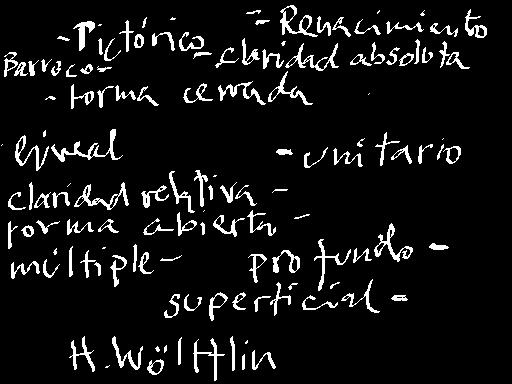 - Pictórico - Renacimiento
Barroco - - claridad absoluta
- forma cerrada
lineal - unitario
claridad relativa -
forma abierta -
múltiple - profundo -
superficial -
H. Wölfflin